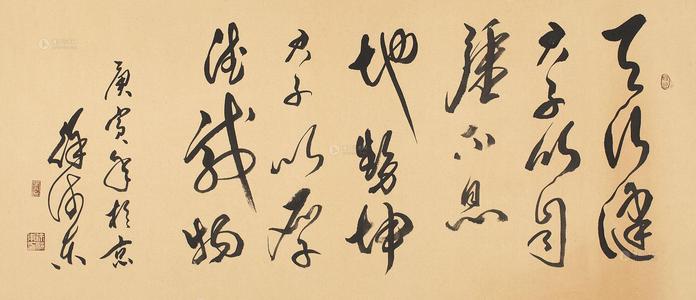 天行健
君子以自
彊不息
地勢坤
君子以厚
德載物
庚寅年於京
徐沛东